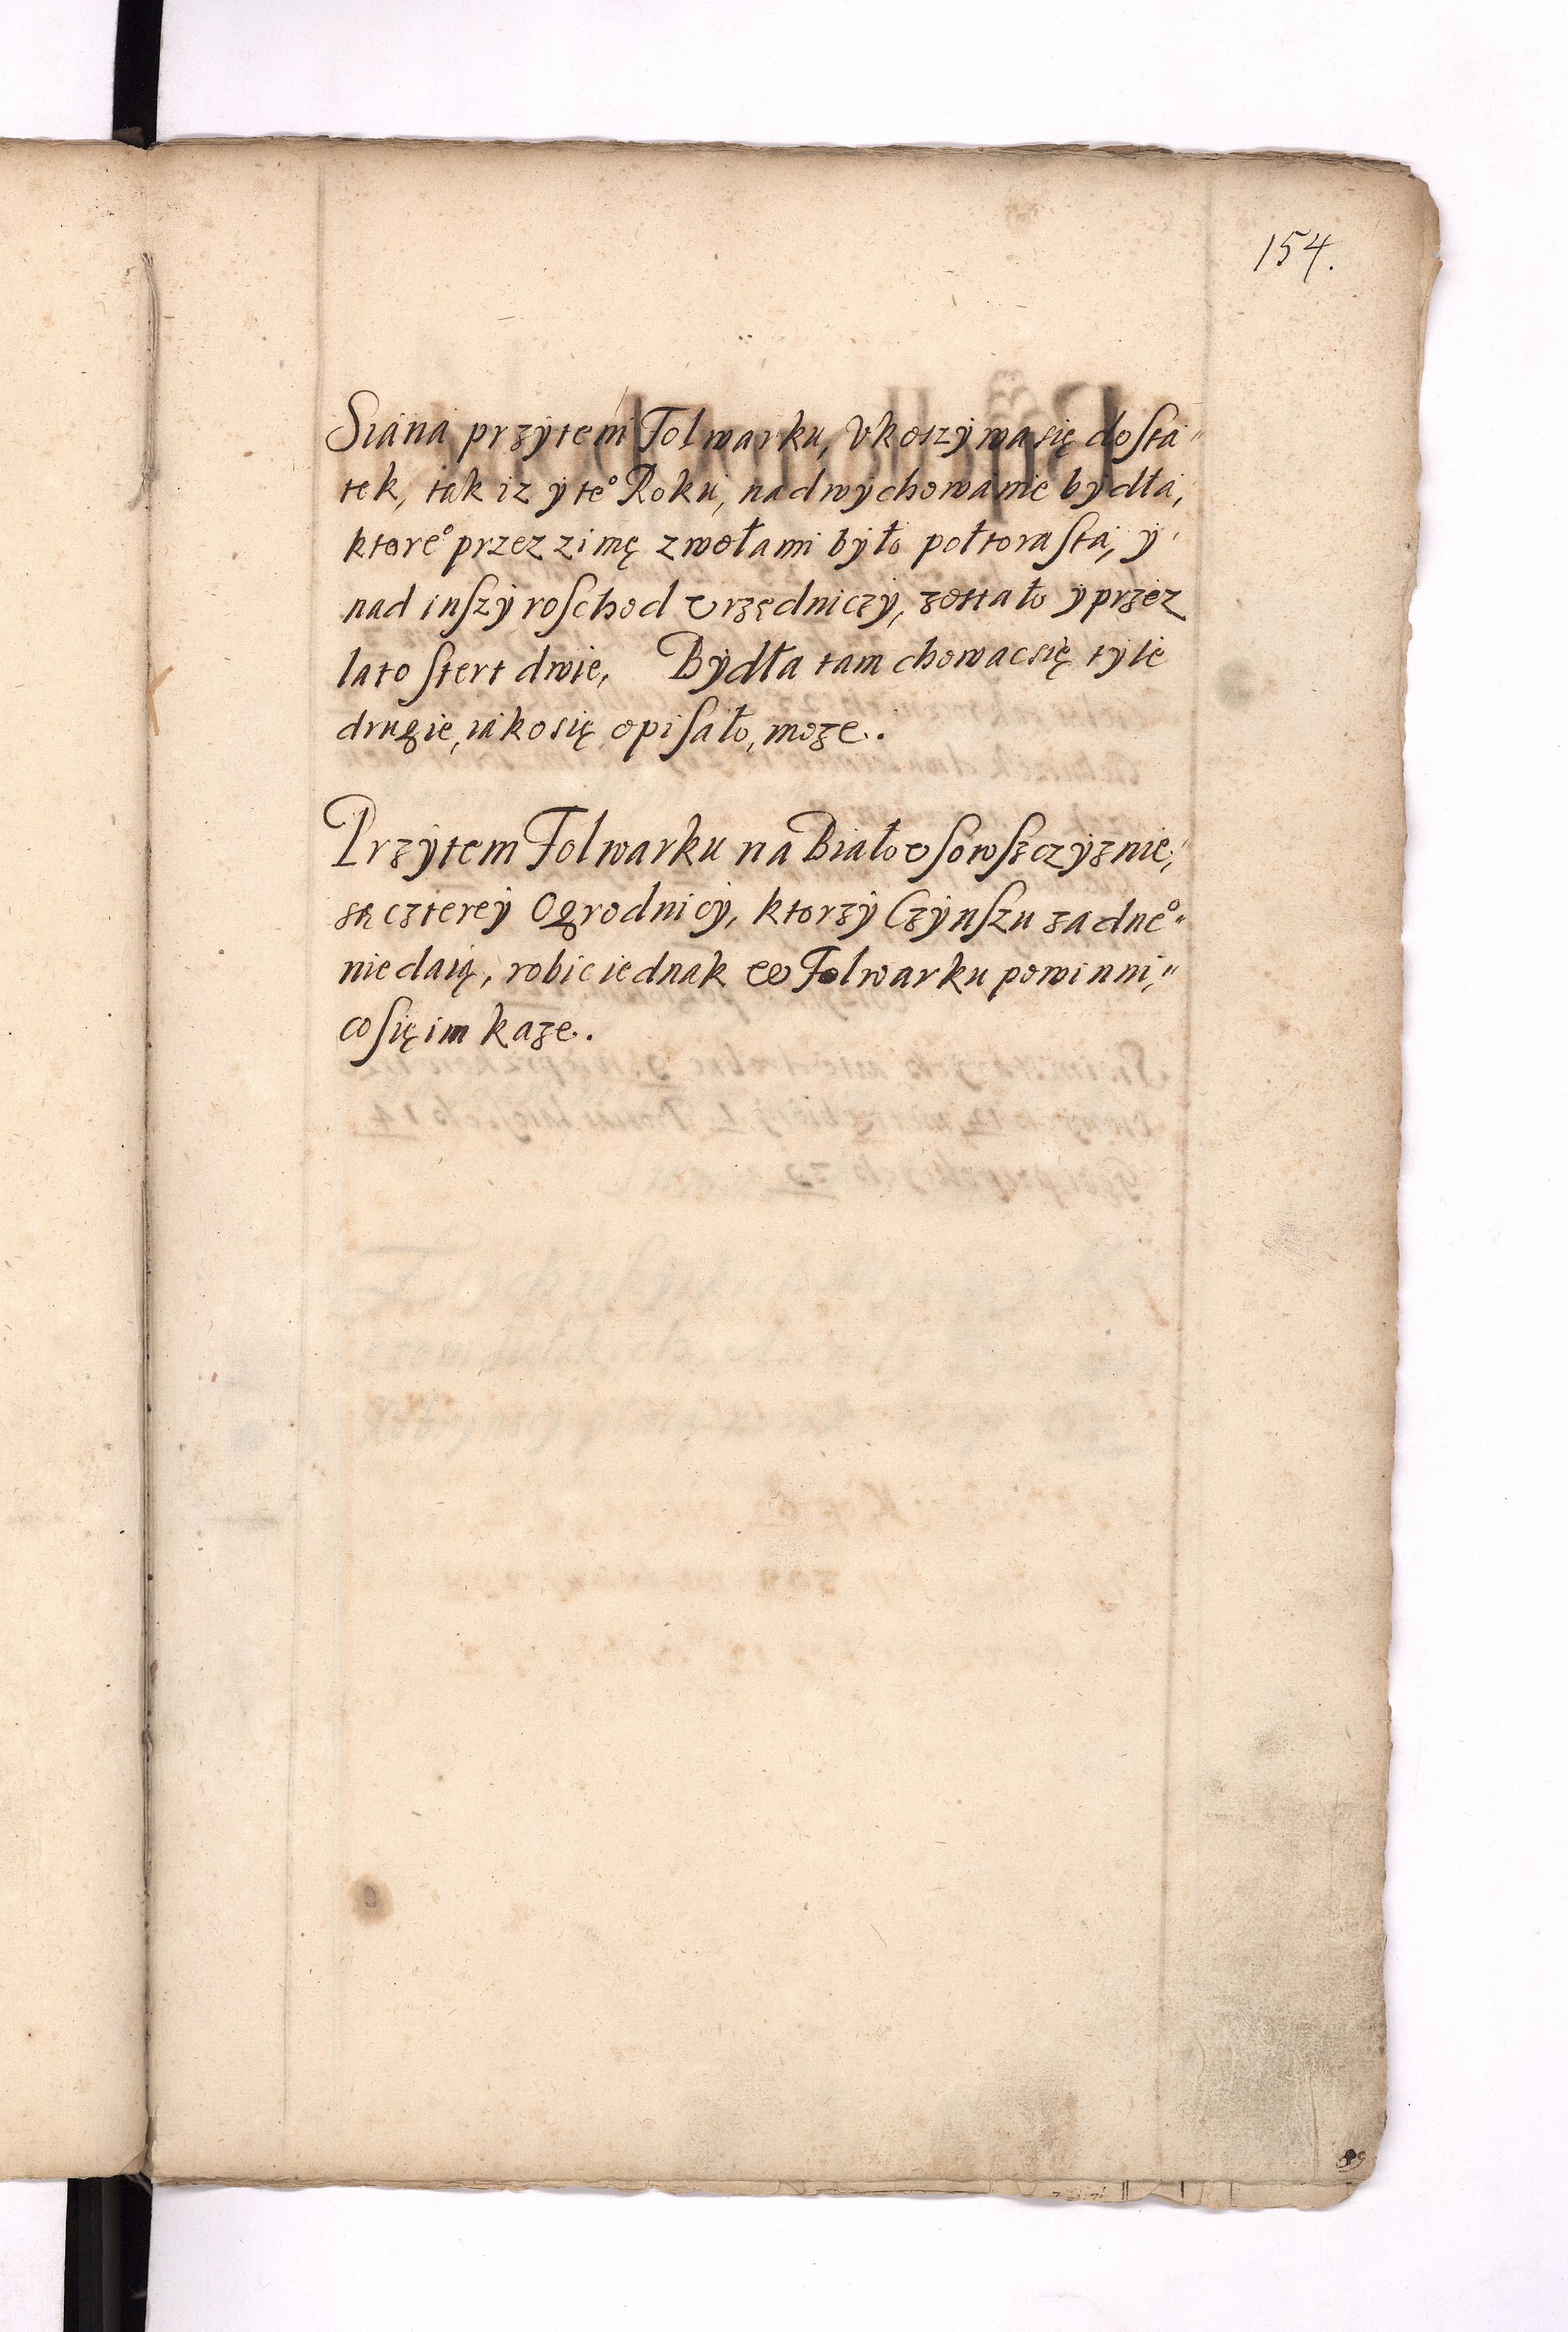 154.
Siana przytem Folwarku, Vkoszywa się dosta„
tek, tak iz y te° Roku, nad wychowanie bydła,
ktore° przez zimę z wołami było połtora sta, y
nad inszy roschod Vrzędniczy, zostało y przez
lato stert dwie, Bydła tam chowac się tyle
drugie, iako się opisało, moze..
Przytem Folwarku na Białousowszczyznie,
są czterey Ogrodnicy, ktorzy Czynszu zadne°„
nie daią, robic iednak w Folwarku powinni,„
co się im kaze..
89